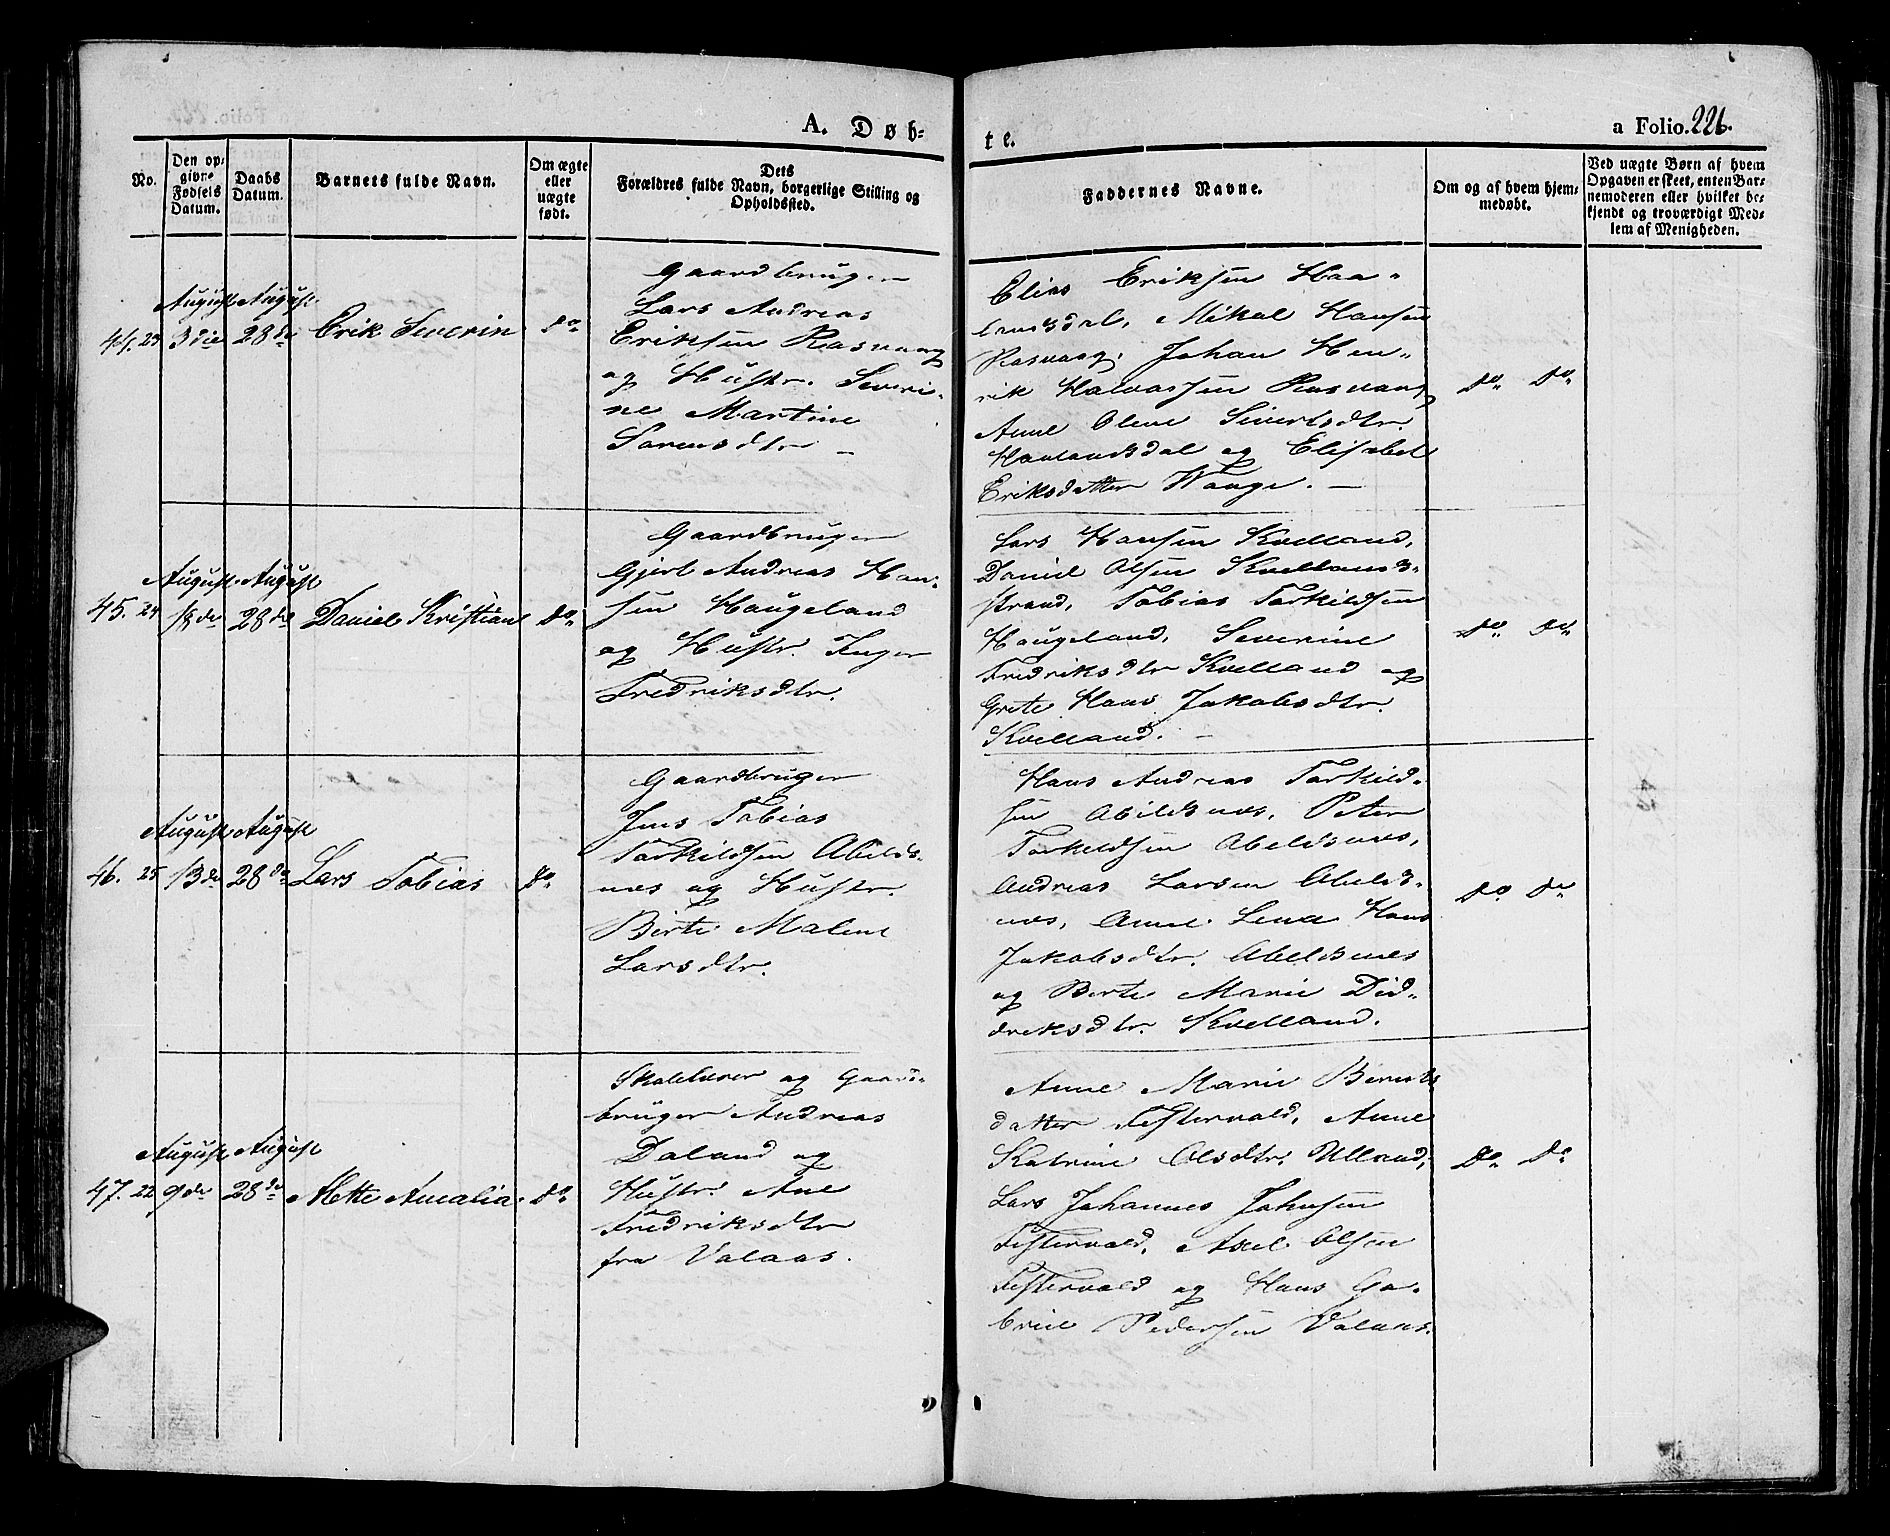 A. Døb-
te.
a Folio. 226.
No.
Den op-
givne
Fødsels
Datum.
Daabs
Datum.
Barnets fulde Navn.
Om ægte
eller
uægte
født.
Dets
Forældres fulde Navn, borgerlige Stilling og
Opholdssted.
Faddernes Navne.
Om og af hvem hjem-
medøbt.
Ved uægte Børn af hvem
Opgaven er skeet, enten Bar-
nemoderen eller hvilket be-
kjendt og troværdigt Med-
lem af Menigheden.
August August
44. 23 3die 28de Erik Severin do
Gaardbruger
Lars Andreas
Eriksen Rasvaag
og Hustr. Severi-
ne Martine
Sørensdtr –
Elias Eriksen Haa-
landsdal, Mikal Hansen
Rasvaag, Johan Hen-
rik Halvorsen Rasvaag
Anne Olene Sivertsdtr.
Haalandsdal og Elisabet
Eriksdatter Waage. –
do do
August August
45. 24 18de 28de Daniel Kristian do
Gaardbruger
Gjert Andreas Han-
sen Haugeland
og Hustr. Inger
Fredriksdtr.
Lars Hansen Kvelland,
Daniel Olsen Kvellands-
strand, Tobias Torkildsen
Haugeland, Severine
Fredriksdtr Kvelland og
Grete Hans Jakobsdtr.
Kvelland. –
do do
August August
46. 25 13de 28de Lars Tobias do
Gaardbruger
Jens Tobias
Torkildsen Abelds-
nes og Hustr.
Birte Malene
Larsdtr.
Hans Andreas Torkild-
sen Abildsnes, Peter
Torkeldsen Abeldsnes,
Andreas Larsen Abelds-
nes, Anne Lena Hans
Jakobsdtr. Abeldsnes
og Berte Marie Did-
driksdtr. Kvelland.
do do
August August
47. 22 9de 28de Mette Amalia do
Skolelærer og Gaard-
bruger Andreas
Daland og
Hustr. Ane
Fredriksdtr
fra Valaas.
Anne Marie Bernts
datter Festervold, Anne
Katrine Olsdtr. Ulland,
Lars Johannes Johnsen
Festervold, Axel Olsen
Festervold og Hans Ga-
briel Pedersen Valaas.
do do